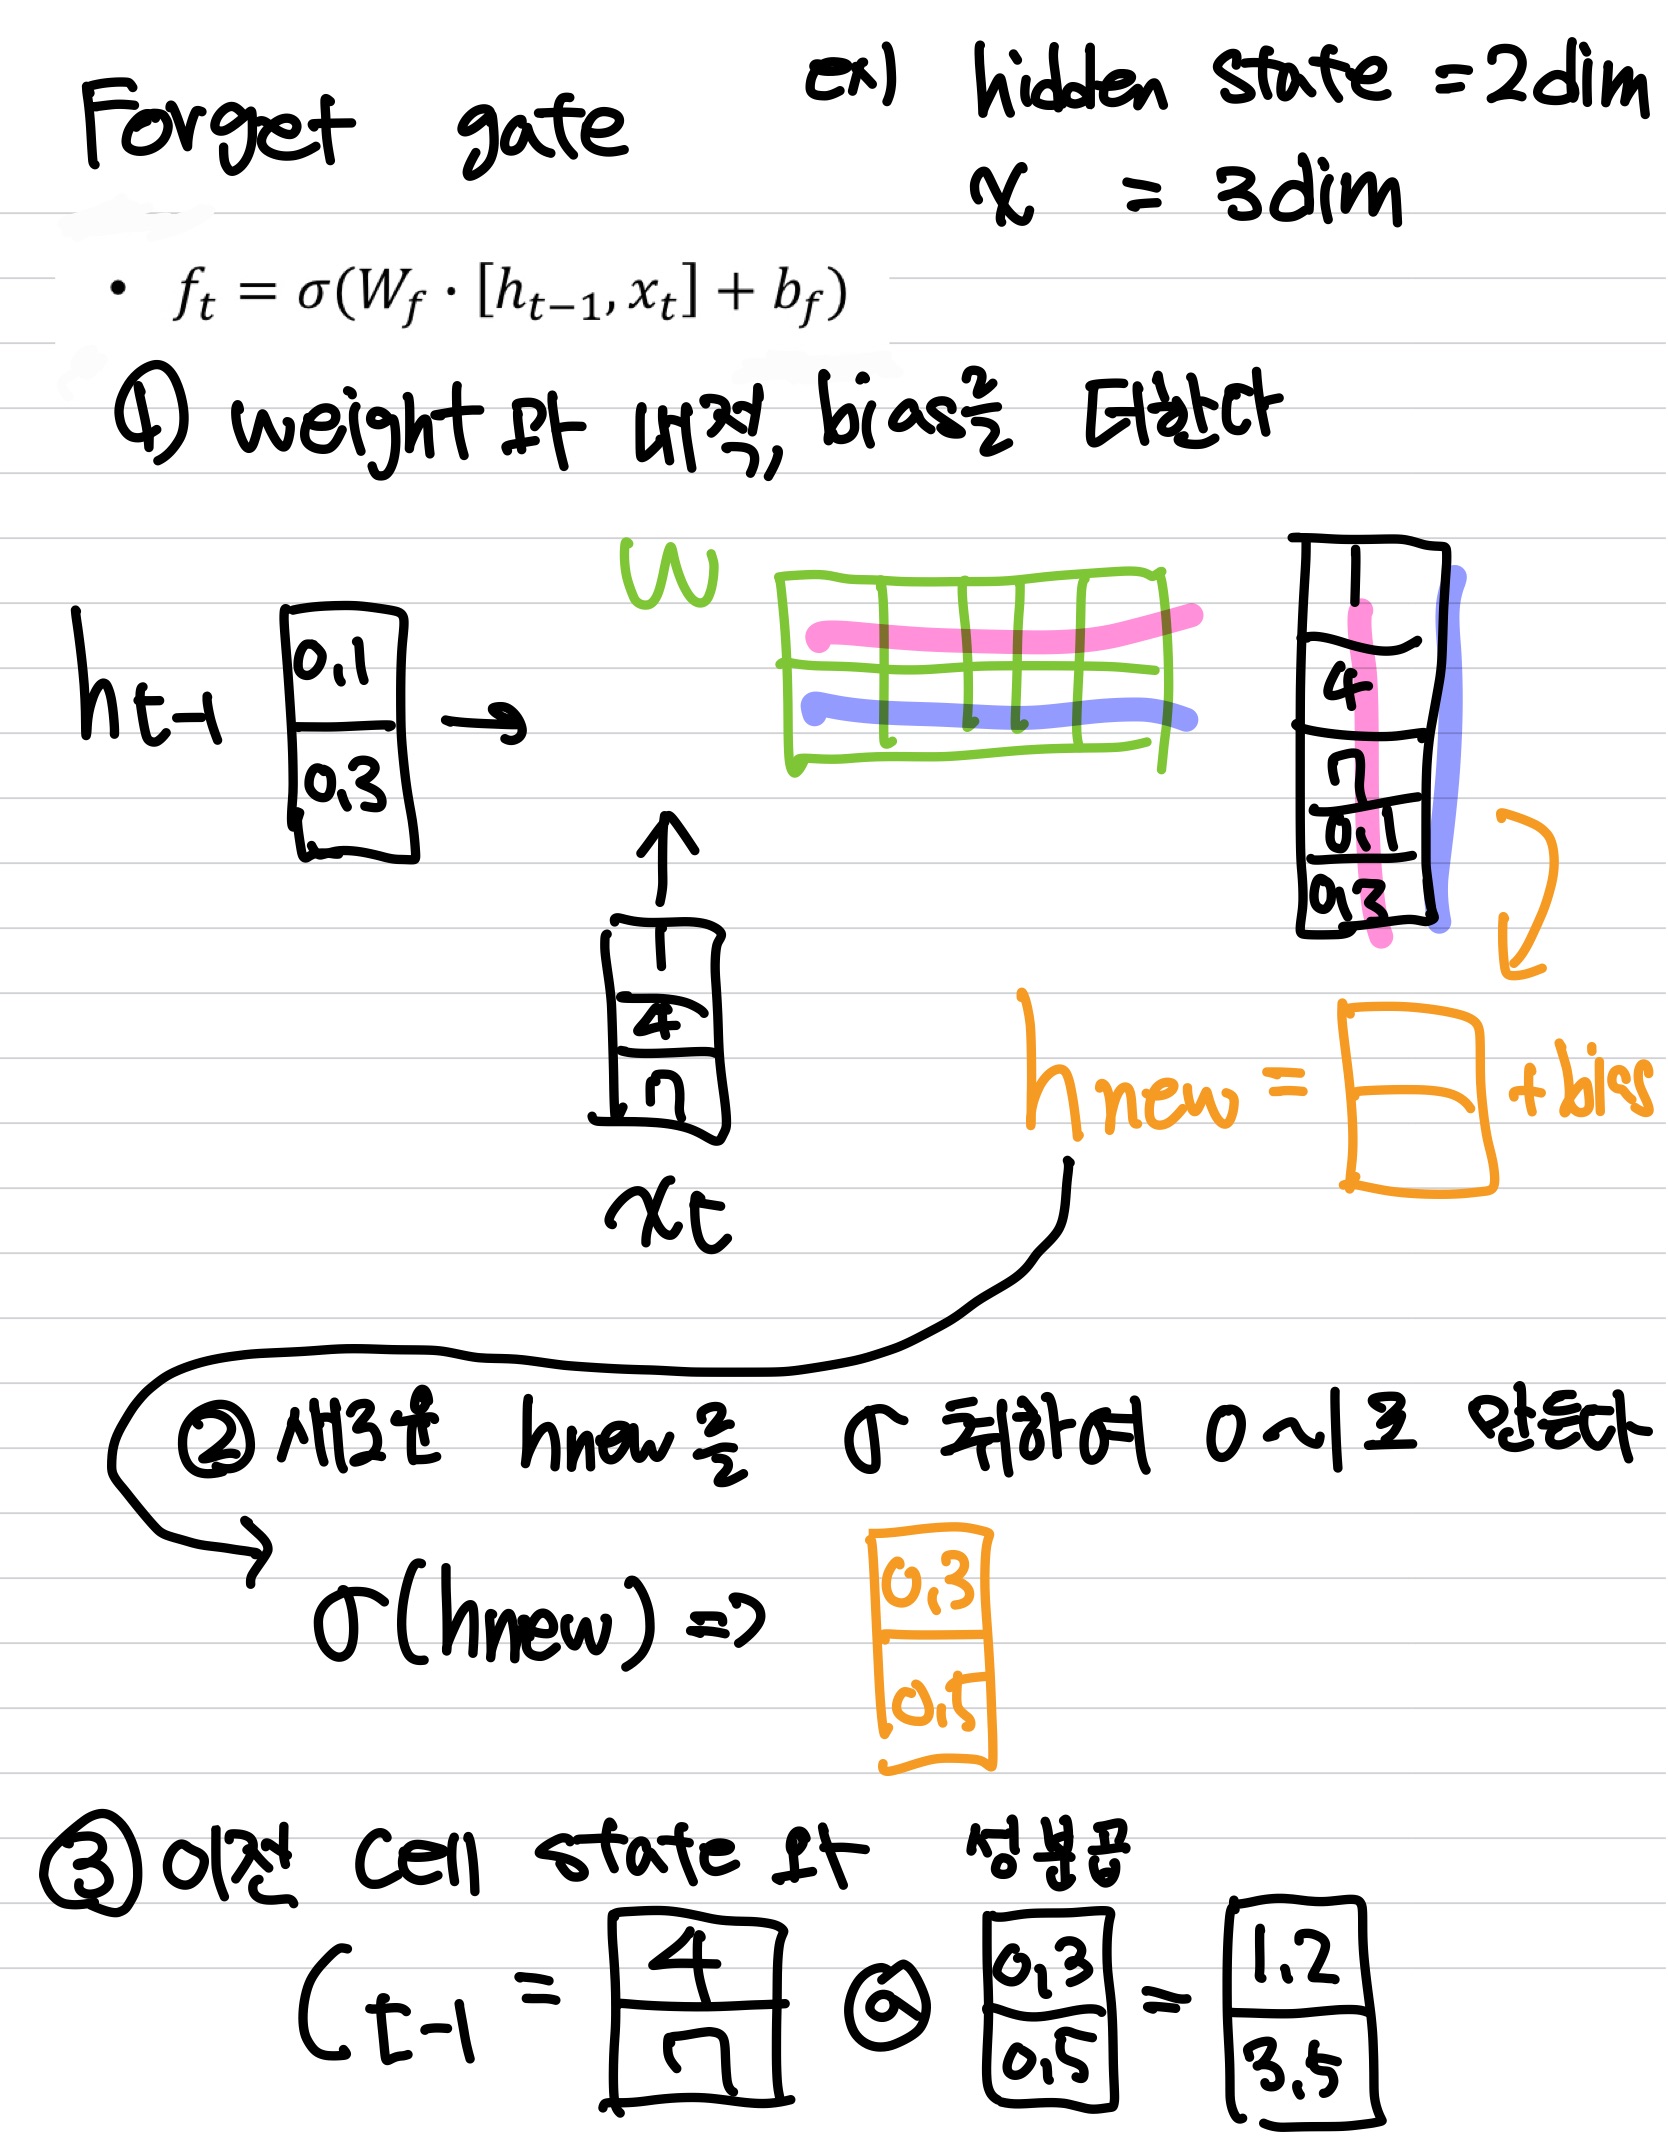 Forget gate
ex) hidden state = 2dim
x = 3dim
• fₜ = σ(W_f · [hₜ₋₁, xₜ] + b_f)
① weight와 내적, bias를 더한다
W
hₜ₋₁
0.1
0.3
→
1
4
7
xₜ
1
4
7
0.1
0.3
hnew = + biss
② 새로운 hnew를 σ 취하여 0~1로 만든다
σ(hnew) =>
0.3
0.5
③ 이전 cell state와 성분곱
Cₜ₋₁ =
4
7
⊙
0.3
0.5
=
1.2
3.5